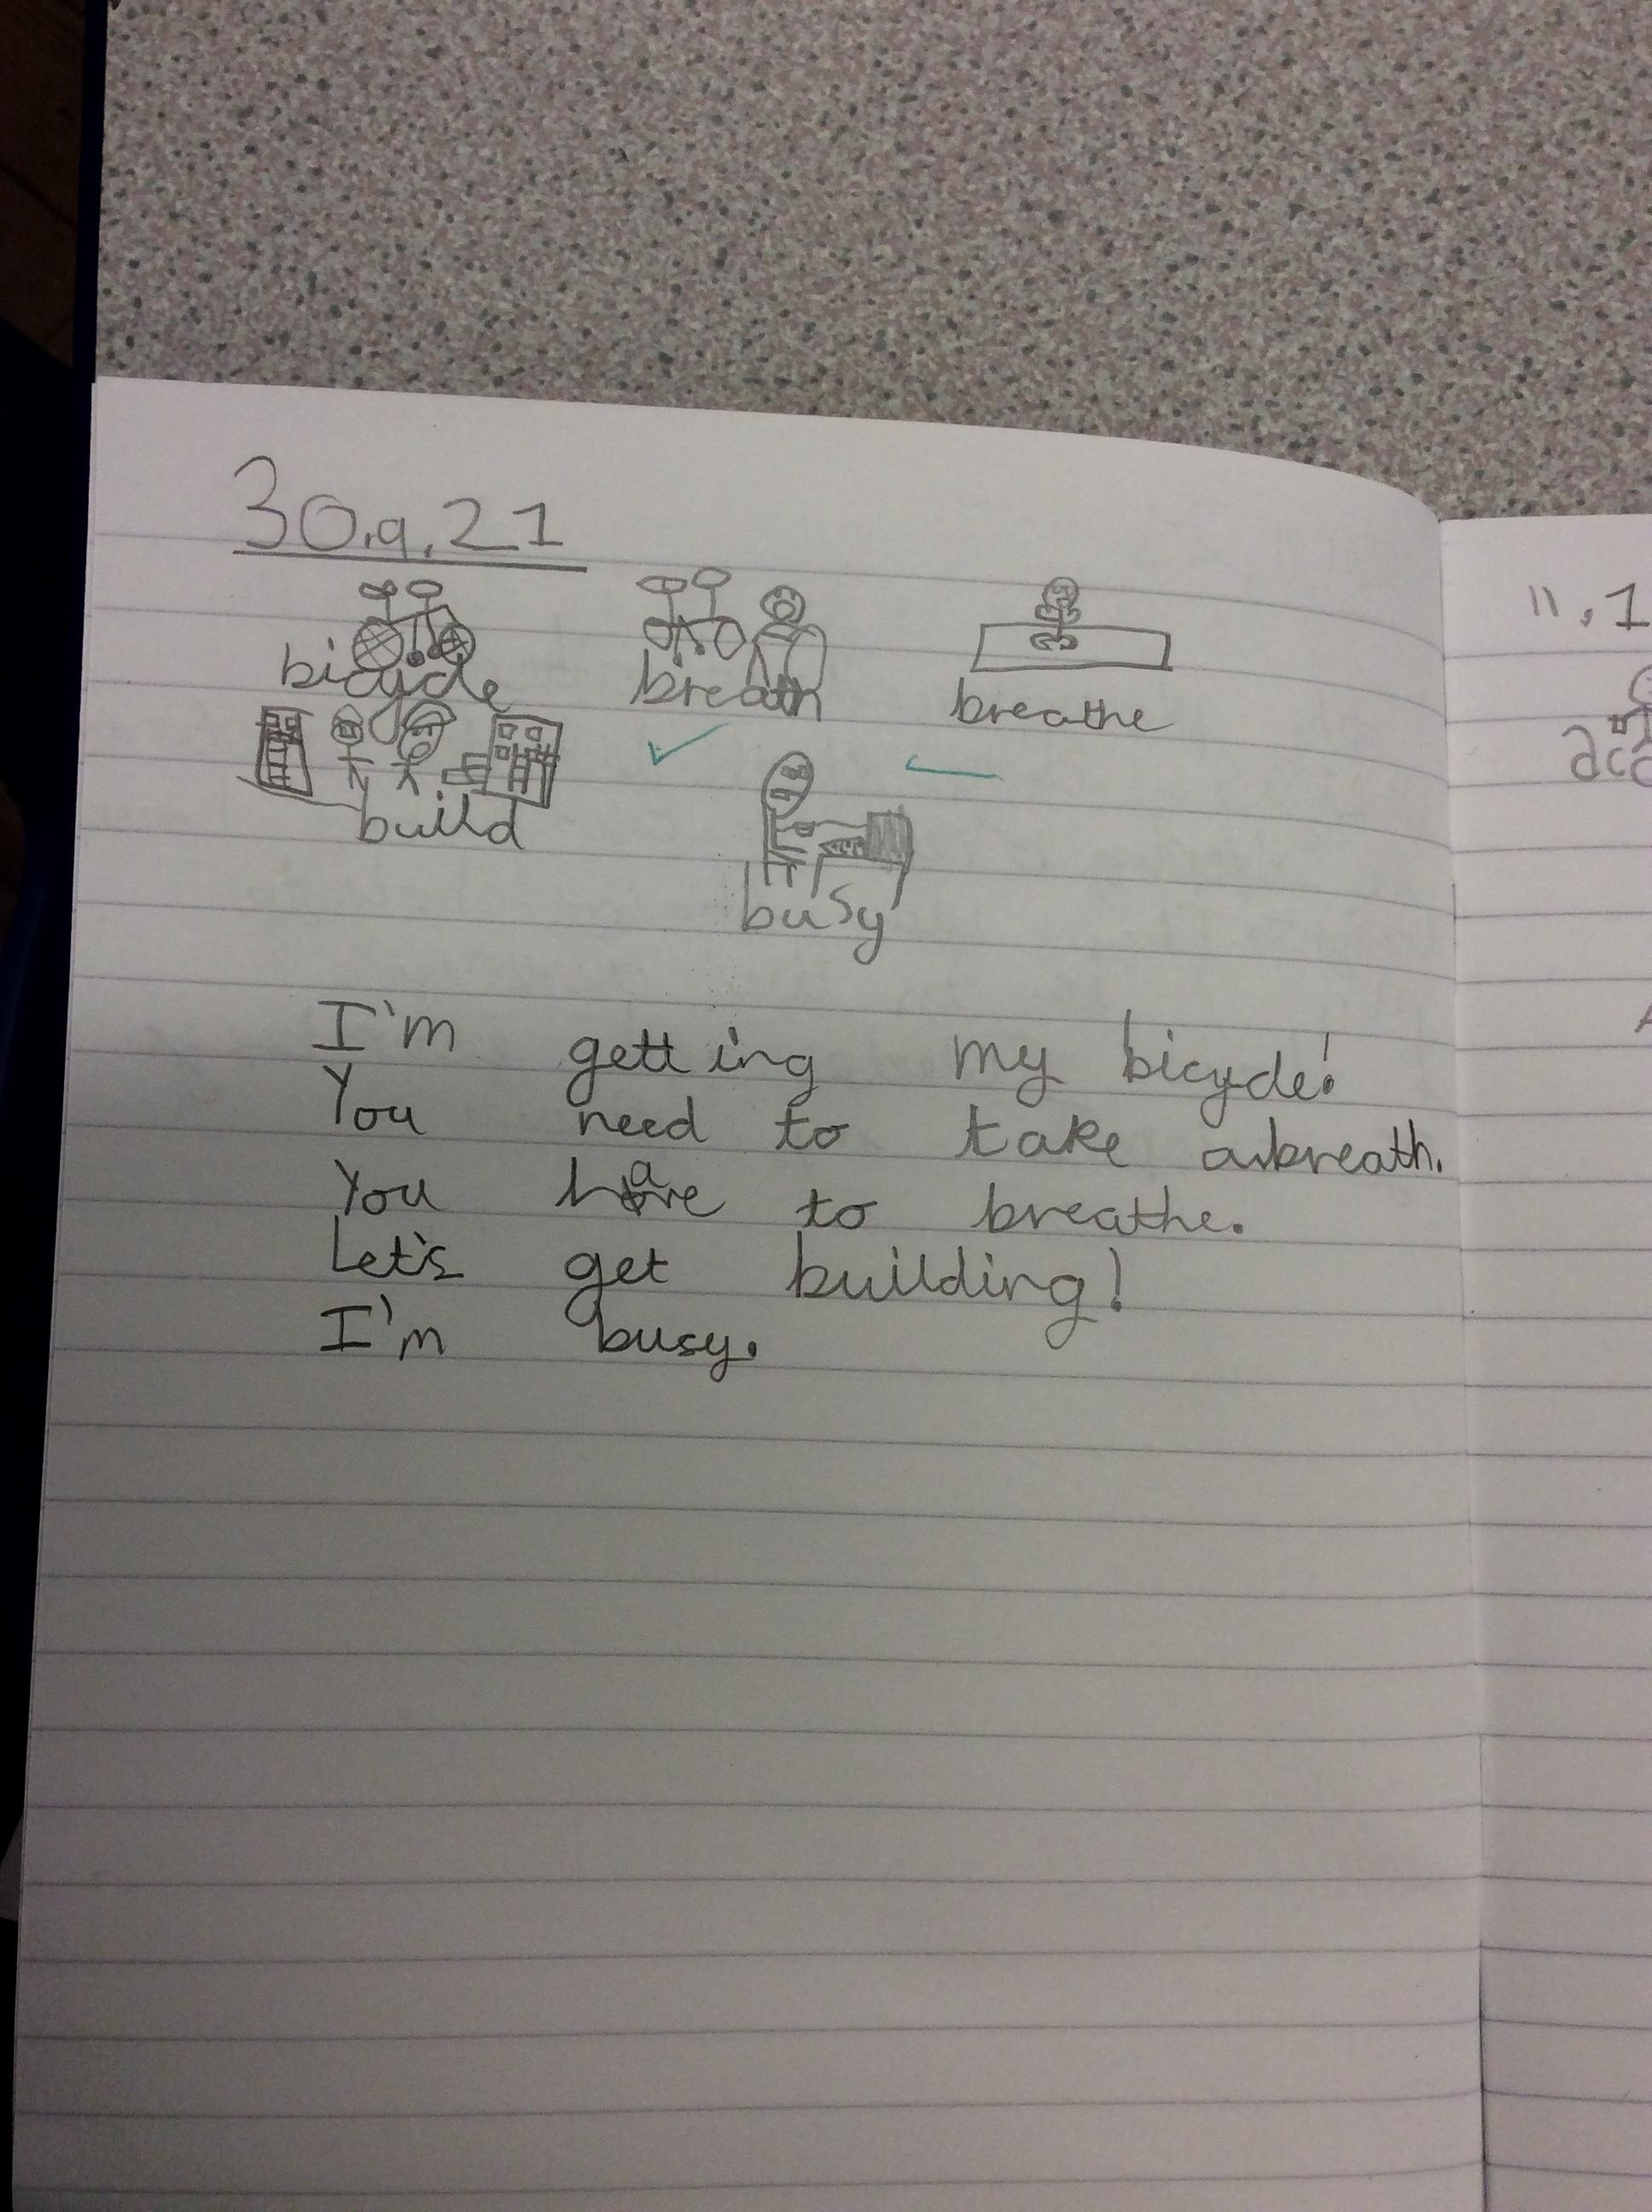 30.9.21
bicycle breath breathe
build
busy
I'm getting my bicycle!
You need to take a breath.
You have to breathe.
Let's get building!
I'm busy.
11.1
acc